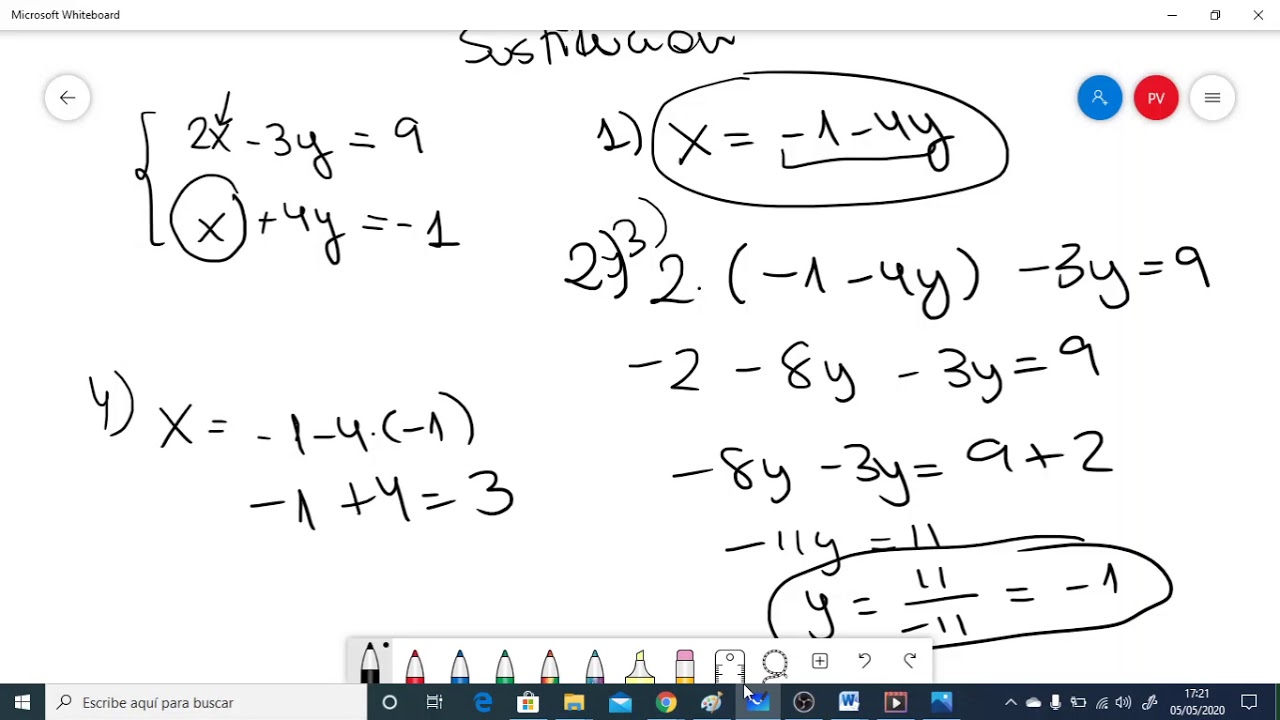 Microsoft Whiteboard
Sustitución
2x - 3y = 9
x + 4y = -1
1) x = -1 - 4y
2) 3) 2·(-1 - 4y) - 3y = 9
-2 - 8y - 3y = 9
-8y - 3y = 9 + 2
-11y = 11
y = 11/-11 = -1
4) x = -1 - 4·(-1)
-1 + 4 = 3
PV
Escribe aquí para buscar
17:21
05/05/2020